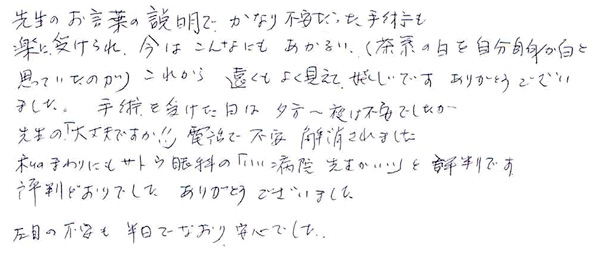 先生のお言葉の説明で、かなり不安だった手術も
楽に受けられ、今はこんなにもあかるい、(茶系の白を自分自身が白と
思っていたのが) これから 遠くもよく見えて、嬉しいです ありがとうござい
ました。 手術を受けた日は 夕方〜夜は不安でしたが
先生の「大丈夫ですか!!」電話で 不安 解消されました
私のまわりにもサトウ眼科の「いい病院 先生がいい」と 評判です
評判どおりでした ありがとうございました
左目の不安も 半日でなおり、安心でした。